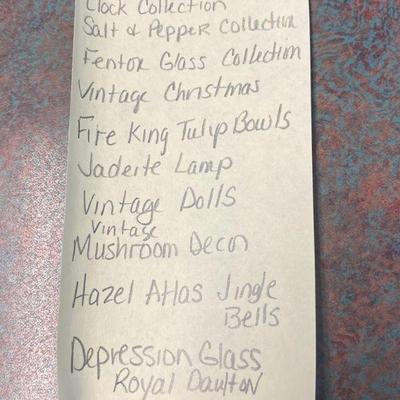 Clock Collection
Salt & Pepper Collection
Fenton Glass Collection
Vintage Christmas
Fire King Tulip Bowls
Jadeite Lamp
Vintage Dolls
Vintage
Mushroom Decor
Hazel Atlas Jingle
Bells
Depression Glass
Royal Daulton